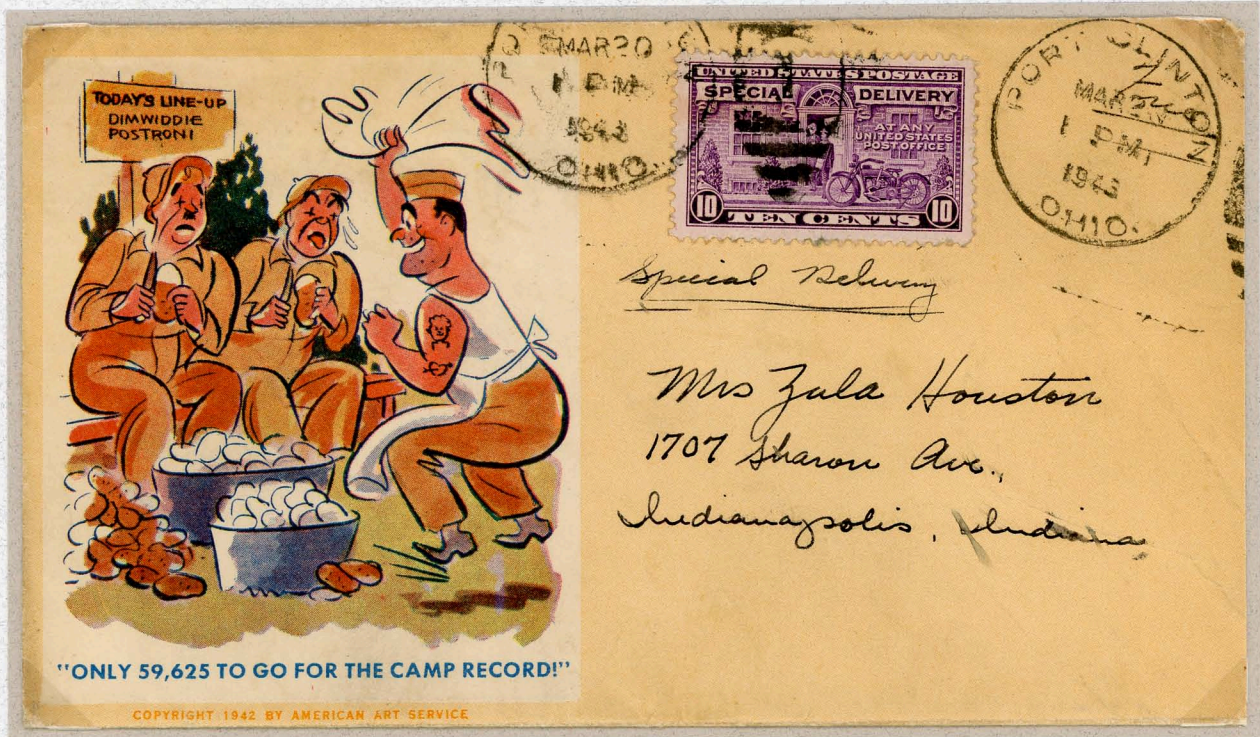 TODAY'S LINE-UP
DIMWIDDIE
POSTRONI
"ONLY 59,625 TO GO FOR THE CAMP RECORD!"
COPYRIGHT 1942 BY AMERICAN ART SERVICE
MAR 20
1 PM
1943
OHIO.
UNITED STATES POSTAGE
SPECIAL DELIVERY
AT ANY
UNITED STATES
POST OFFICE
10 TEN CENTS 10
PORT CLINTON
MAR
1 PM
1943
OHIO.
Special Delivery
Mrs Zula Houston
1707 Sharon Ave.,
Indianapolis, Indiana